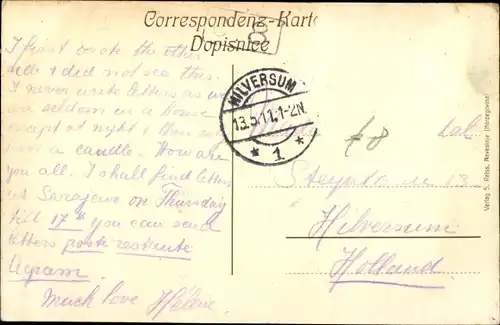 Correspondenz-Karte
Dopisnice
I first wrote the other
side & did not see this.
I never write letters as we
are seldom in a house
except at night & then only
a candle. How are
you all. I shall find letters
at Sarajevo on Thursday
till 17th you can send
letters poste restante
Agram.
Much love Hélène.
HILVERSUM
13.5.11.1-2N.
* 1 *
13
Hilversum
Holland.
Verlag S. Feiss, Nevesinje (Herzegowina)